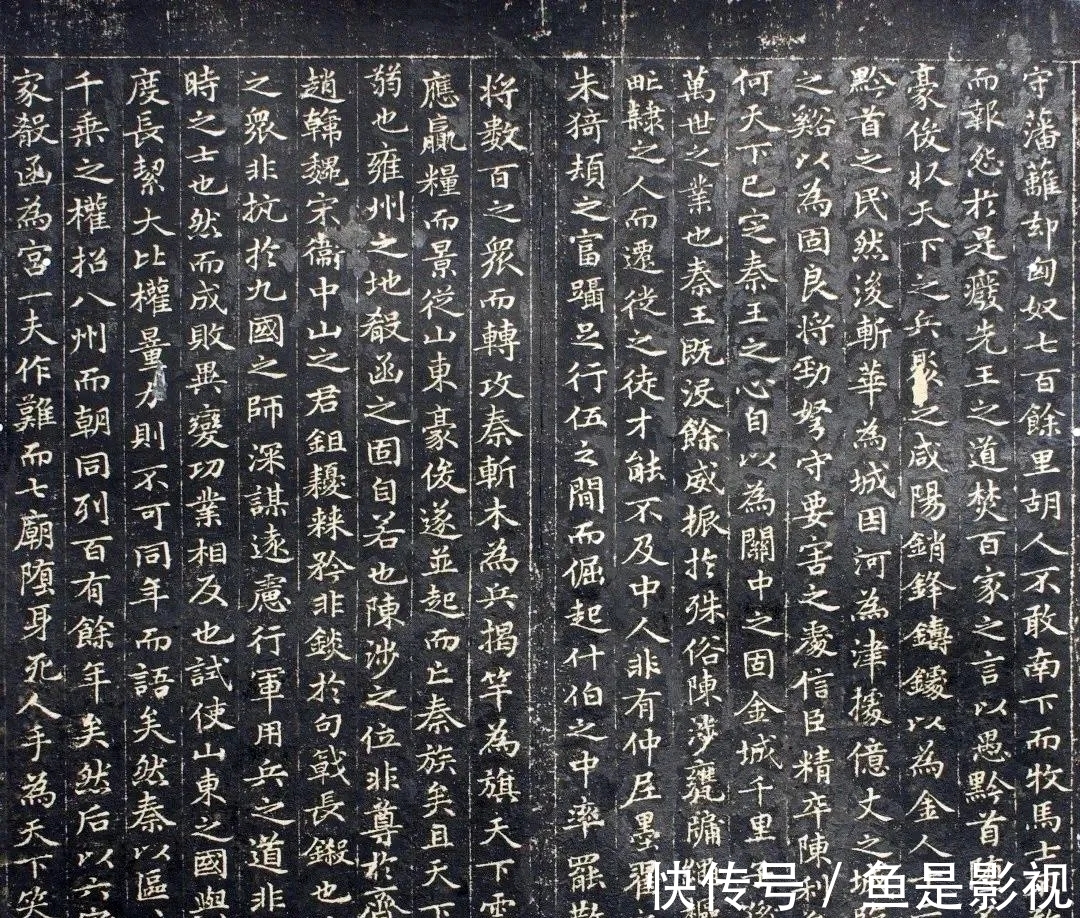 守藩蘺却匈奴七百餘里胡人不敢南下而牧馬士
而報怨於是癈先王之道焚百家之言以愚黔首
豪俊收天下之兵聚之咸陽銷鋒鑄鐻以為金人
黔首之民然後斬華為城因河為津據億丈之城
之谿以為固良将勁弩守要害之處信臣精卒陳利
何天下已定秦王之心自以為關中之固金城千里子孫
萬世之業也秦王既没餘威振於殊俗陳涉甕牖繩
甿隸之人而遷徙之徒才能不及中人非有仲尼墨翟
朱猗頓之富躡足行伍之間而倔起什伯之中率罷散
将数百之眾而轉攻秦斬木為兵揭竿為旗天下雲
應贏糧而景從山東豪俊遂並起而亡秦族矣且天下
弱也雍州之地殽函之固自若也陳涉之位非尊於齊
趙韓魏宋衞中山之君鉏耰棘矜非錟於句戟長鎩也
之眾非抗於九國之師深謀遠慮行軍用兵之道非
時之士也然而成敗異變功業相反也試使山東之國與
度長絜大比權量力則不可同年而語矣然秦以區
千乘之權招八州而朝同列百有餘年矣然后以六合
家殽函為宮一夫作難而七廟堕身死人手為天下笑
快传号/鱼是影视